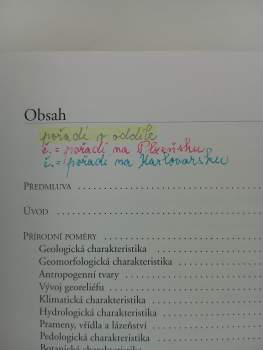 Obsah
pořadí v oddíle
č. = pořadí na Plzeňsku
č. = pořadí na Karlovarsku
PŘEDMLUVA
ÚVOD
PŘÍRODNÍ POMĚRY
Geologická charakteristika
Geomorfologická charakteristika
Antropogenní tvary
Vývoj georeliéfu
Klimatická charakteristika
Hydrologická charakteristika
Prameny, vřídla a lázeňství
Pedologická charakteristika
Botanická charakteristika